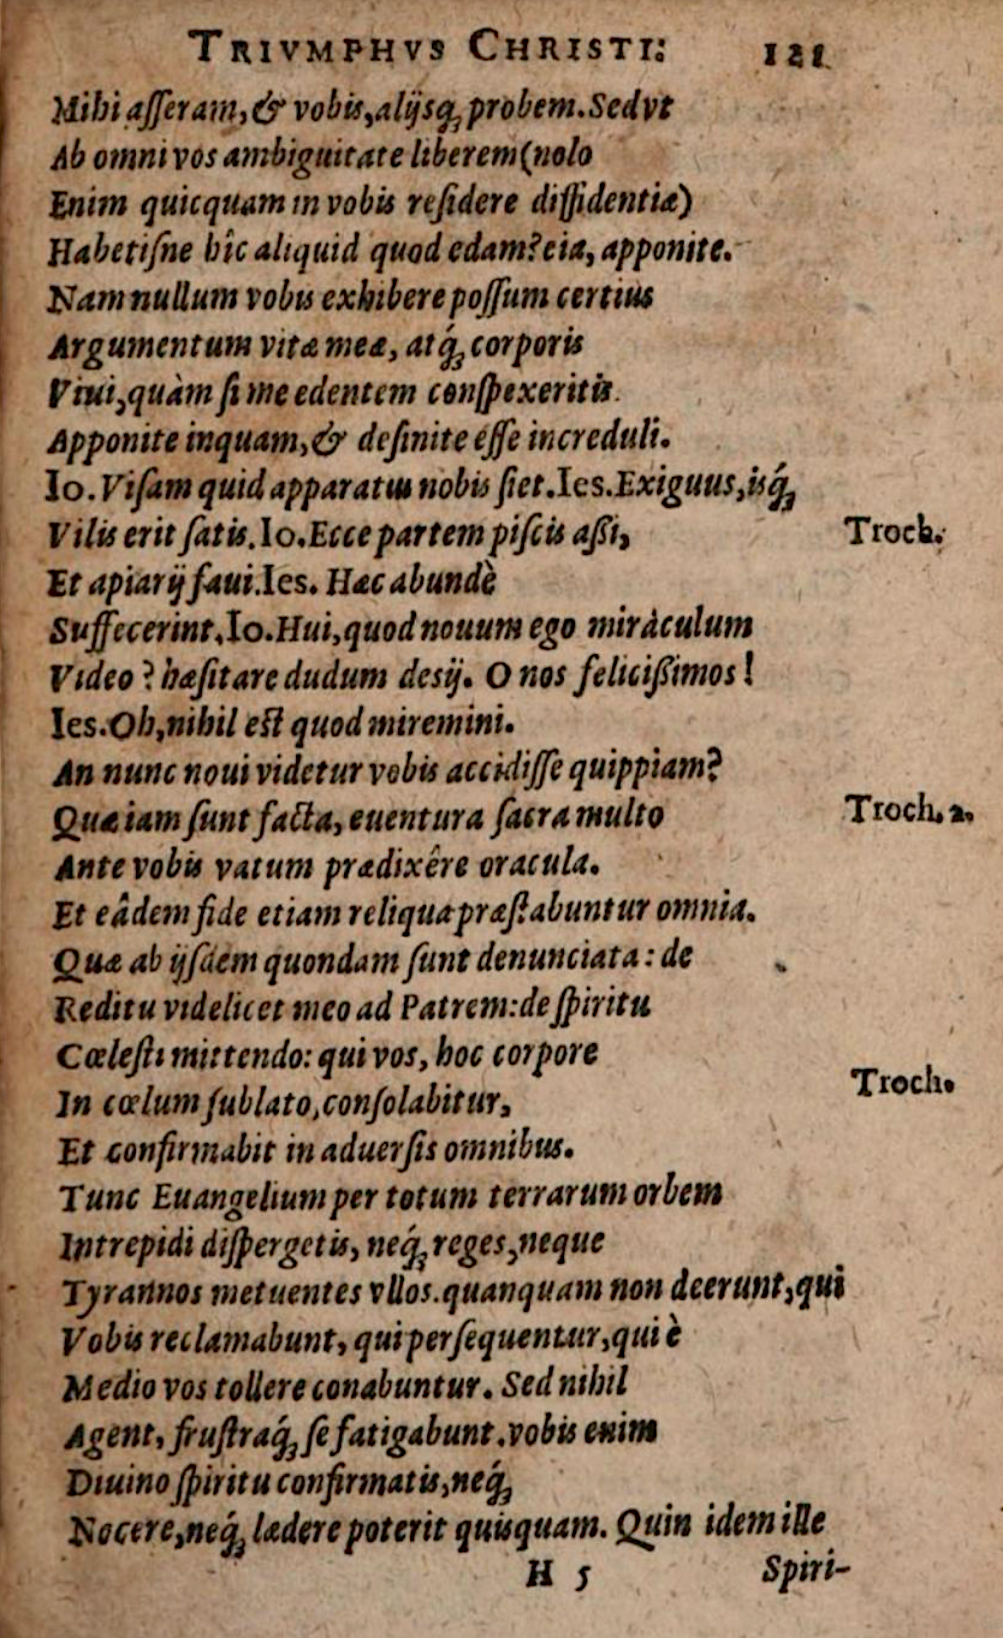 TRIVMPHVS CHRISTI: 121
Mihi asseram, & vobis, alijsq́; probem. Sed vt
Ab omni vos ambiguitate liberem (nolo
Enim quicquam in vobis residere diffidentiæ)
Habetisne hîc aliquid quod edam? eia, apponite.
Nam nullum vobis exhibere possum certius
Argumentum vitæ meæ, atq́; corporis
Viui, quàm si me edentem conspexeritis.
Apponite inquam, & desinite esse increduli.
Io. Visam quid apparatus nobis siet. Ies. Exiguus, isq́;
Vilis erit satis. Io. Ecce partem piscis assi, Troch.
Et apiarij faui. Ies. Hæc abundè
Suffecerint. Io. Hui, quod nouum ego miràculum
Video? hæsitare dudum desij. O nos felicissimos!
Ies. Oh, nihil est quod miremini.
An nunc noui videtur vobis accidisse quippiam?
Quæ iam sunt facta, euentura sacra multo Troch. 2.
Ante vobis vatum prædixêre oracula.
Et eâdem fide etiam reliqua præstabuntur omnia.
Quæ ab ijsdem quondam sunt denunciata: de
Reditu videlicet meo ad Patrem: de spiritu
Cœlesti mittendo: qui vos, hoc corpore
In cœlum sublato, consolabitur, Troch.
Et confirmabit in aduersis omnibus.
Tunc Euangelium per totum terrarum orbem
Intrepidi dispergetis, neq́; reges, neque
Tyrannos metuentes vllos. quanquam non deerunt, qui
Vobis reclamabunt, qui persequentur, qui è
Medio vos tollere conabuntur. Sed nihil
Agent, frustraq́; se fatigabunt. vobis enim
Diuino spiritu confirmatis, neq́;
Nocere, neq́; lædere poterit quisquam. Quin idem ille
H 5 Spiri-